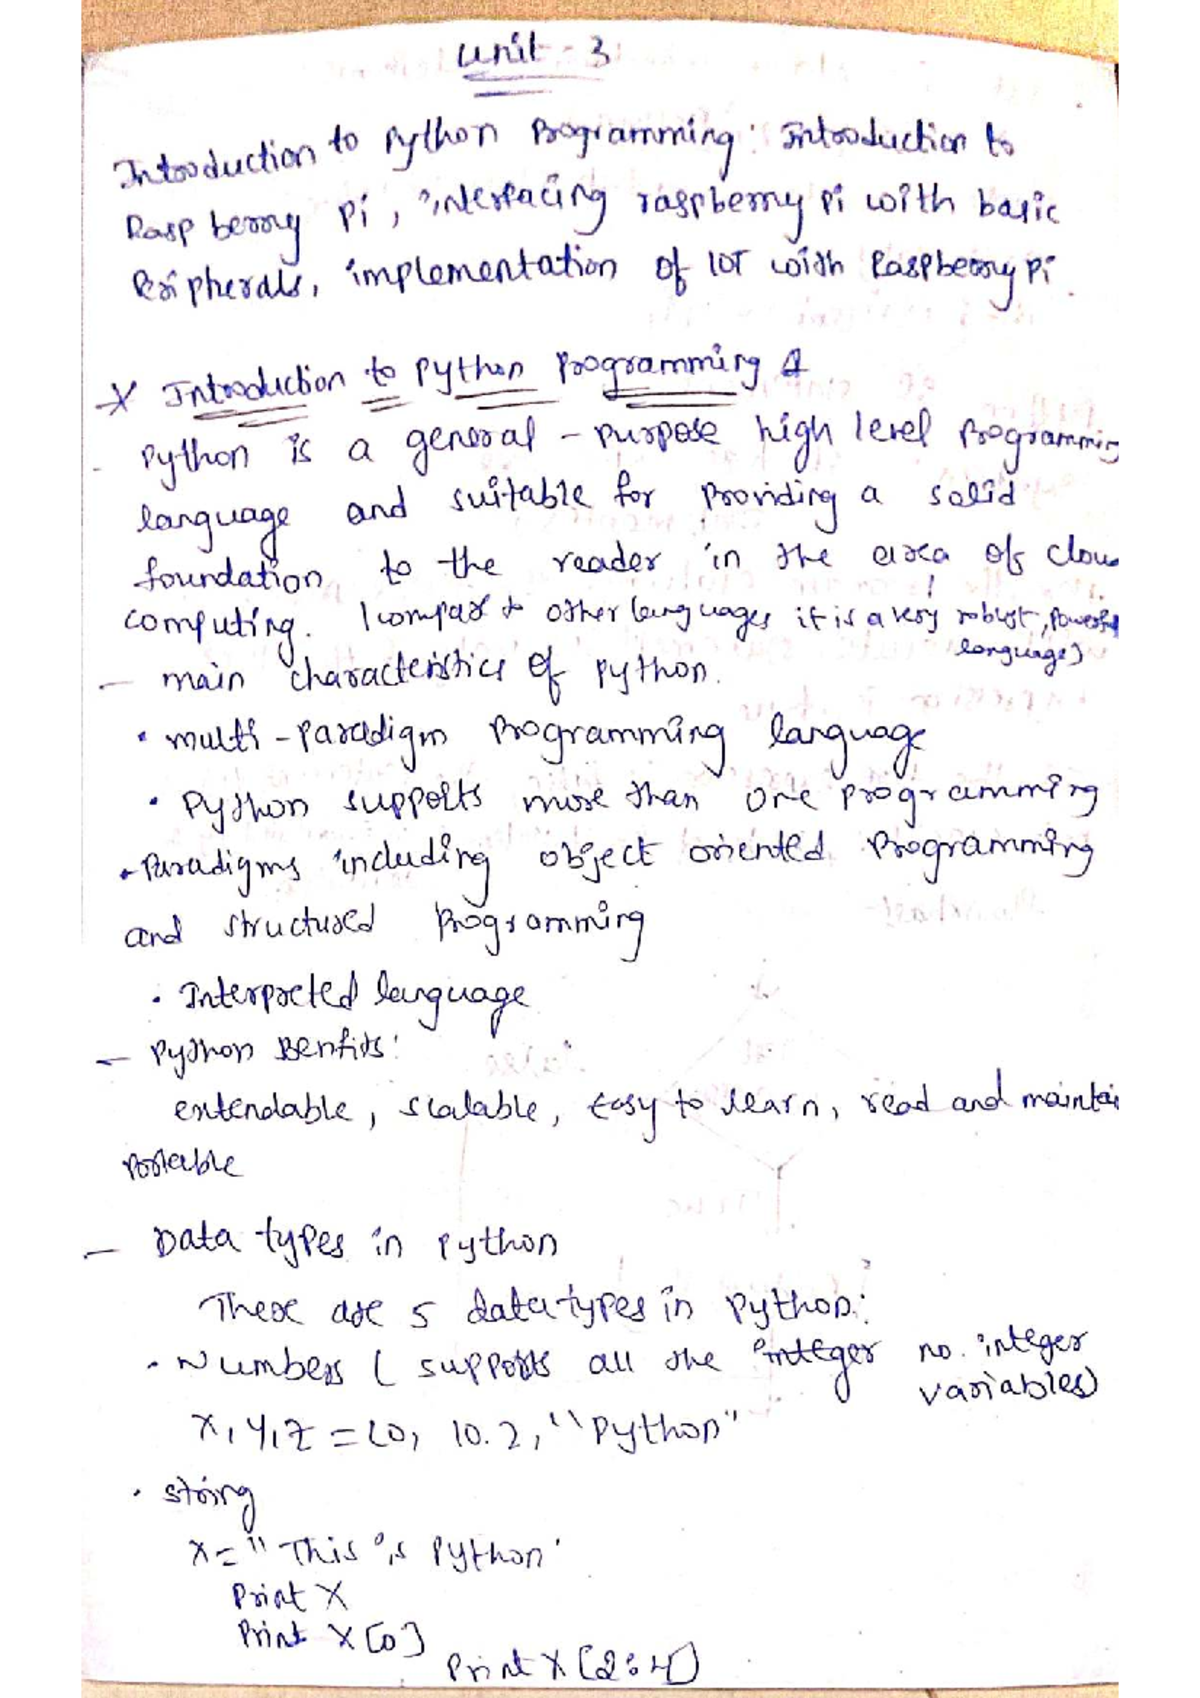 Unit - 3
Introduction to Python Programming: Introduction to
Raspberry Pi, interfacing raspberry Pi with basic
Peripherals, implementation of IOT with Raspberry Pi.
Introduction to Python Programming
- Python is a general - purpose high level Programmin
language and suitable for Providing a solid
foundation to the reader in the area of clou
computing. (compar to other languages it is a very robust, Powerf
language)
- main characteristics of Python.
• multi - Paradigm Programming language
• Python supports more than one programming
Paradigms including object oriented Programming
and structured Programming
• Interpreted language
- Python Benfits:
extendable, scalable, Easy to learn, read and maintai
Portable
- Data types in Python
There are 5 data types in Python:
• Numbers ( supports all the integer no. integer
variables)
x, y, z = 10, 10.2, "Python"
• string
x = "This is Python'
Print X
Print X [0]
Print X [2:4]